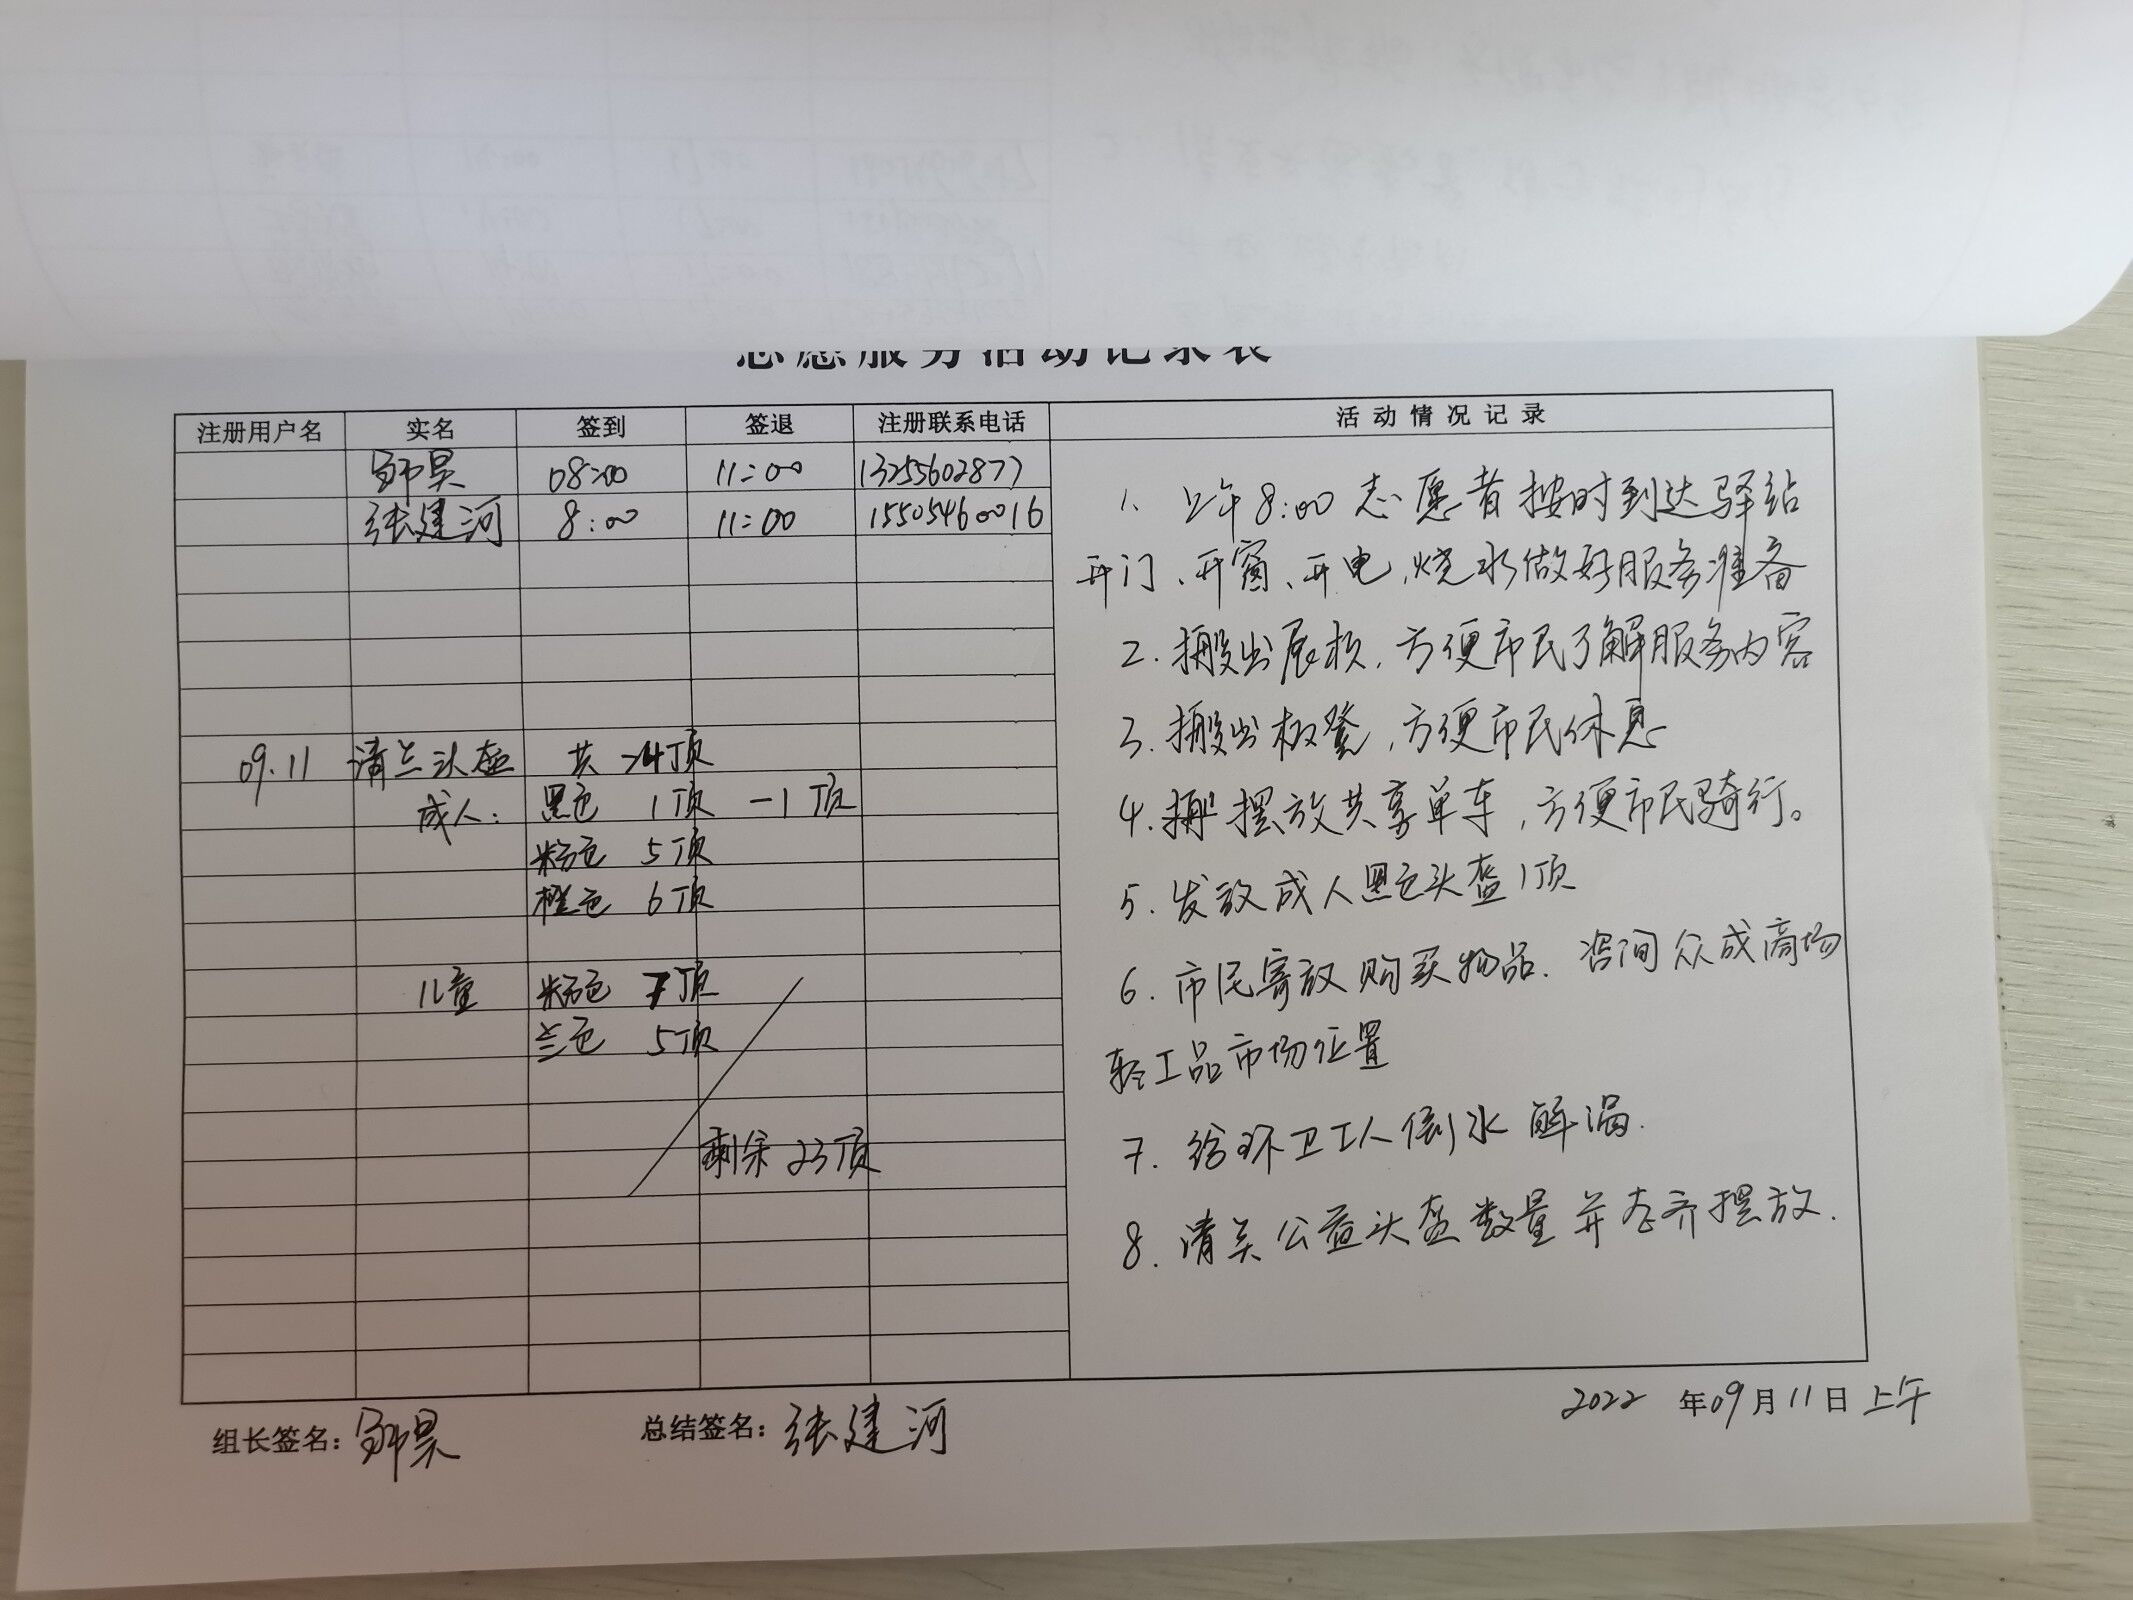 志愿服务活动记录表
注册用户名 实名 签到 签退 注册联系电话 活动情况记录
昊 08:00 11:00 13255602877
张建河 8:00 11:00 15505460016
1、上午8:00志愿者按时到达驿站
开门、开窗、开电,烧水做好服务准备
2.搬出展板,方便市民了解服务内容
3.搬出板凳,方便市民休息
4.摆放共享单车,方便市民骑行。
5.发放成人黑色头盔1顶
6.市民寄放购买物品.咨询众成商场
轻工品市场位置
7.给环卫工人倒水解渴.
8.清点公益头盔数量并齐摆放.
09.11 清点头盔 共24顶
成人: 黑色 1顶 -1顶
粉色 5顶
橙色 6顶
儿童 粉色 7顶
兰色 5顶
剩余23顶
2022年09月11日上午
组长签名: 昊 总结签名:张建河